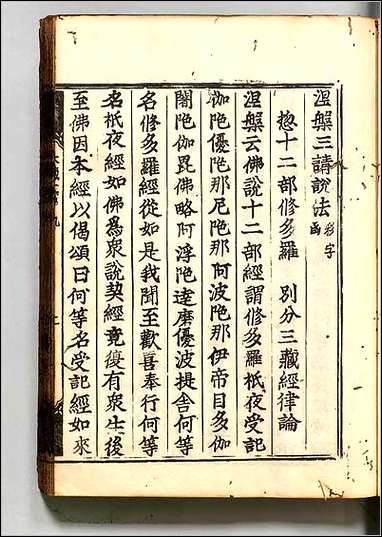 涅槃三請說法 彩字函
惣十二部修多羅 別分三藏經律論
涅槃云佛說十二部經謂修多羅祇夜受記
伽陁優陁那尼陁那阿波陁那伊帝目多伽
闍陁伽毘佛略阿浮陁達磨優波提舍何等
名修多羅經從如是我聞至歡喜奉行何等
名祇夜經如佛爲衆說契經竟復有衆生後
至佛因本經以偈頌曰何等名受記經如來